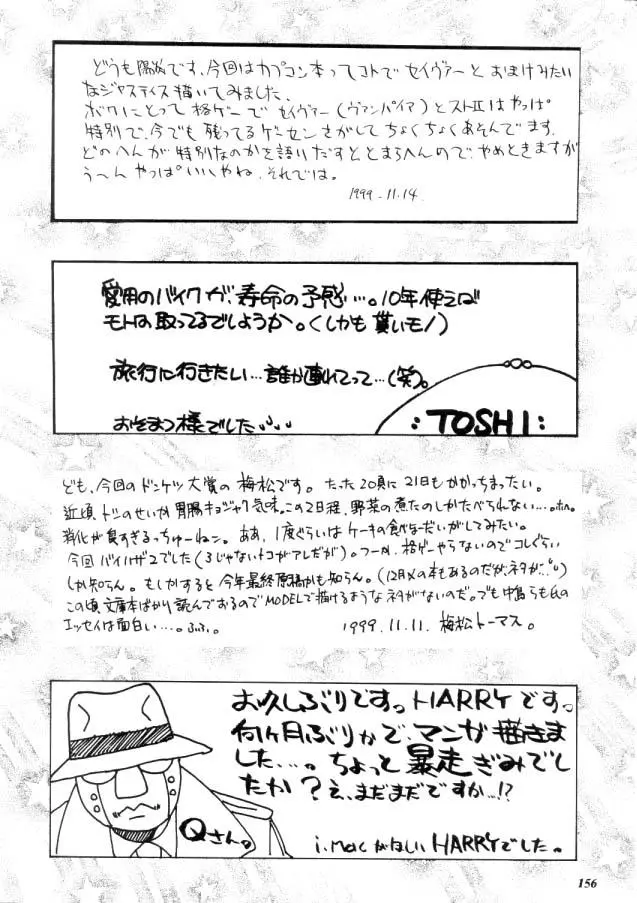 どうも陽気です、今回はカプコン本ってコトでセイヴァーとおまけみたい
なジャスティス描いてみました。
ボクにとって格ゲーでセイヴァー(ヴァンパイア)とストⅡはやっぱ
特別で、今でも残ってるゲーセンさがしてちょくちょくあそんでます。
どのへんが特別なのかを語りだすととまらへんので、やめときますが
う〜んやっぱいいやね、それでは。
1999-11.14
愛用のバイクが、寿命の予感…。10年使えば
モトは取ってるでしょうか。(しかも貰いモノ)
旅行に行きたい…誰か連れてって…(笑)。
おそまつ様でした
:TOSHI:
ども、今回のドンケツ大賞の梅松です。たった20頁に21日もかかっちまったい。
近頃、トシのせいか胃腸キョジャク気味。この2日程、野菜の煮たのしかたべられない…。
消化が良すぎるっちゅーねン。ああ、1度ぐらいはケーキの食べほーだいがしてみたい。
今回バイハザ2でした(3じゃないトコがアレだが)。フーか、格ゲーやらないのでコレぐらい
しか知らん。もしかすると今年最終原稿かも知らん。(12月〆の本もあるのだがネタが…)
この頃文庫本ばかり読んでおるのでMODELで描けるようなネタがないのだ。でも中島らも氏の
エッセイは面白い…。ふふ。
1999.11.11. 梅松トーマス。
お久しぶりですっHARRYですっ
何ヶ月ぶりかで、マンガ描きま
した…。ちょっと暴走ぎみでし
たか?え、まだまだですか…!?
Qさん。
i.Macがほしい HARRYでした。
156